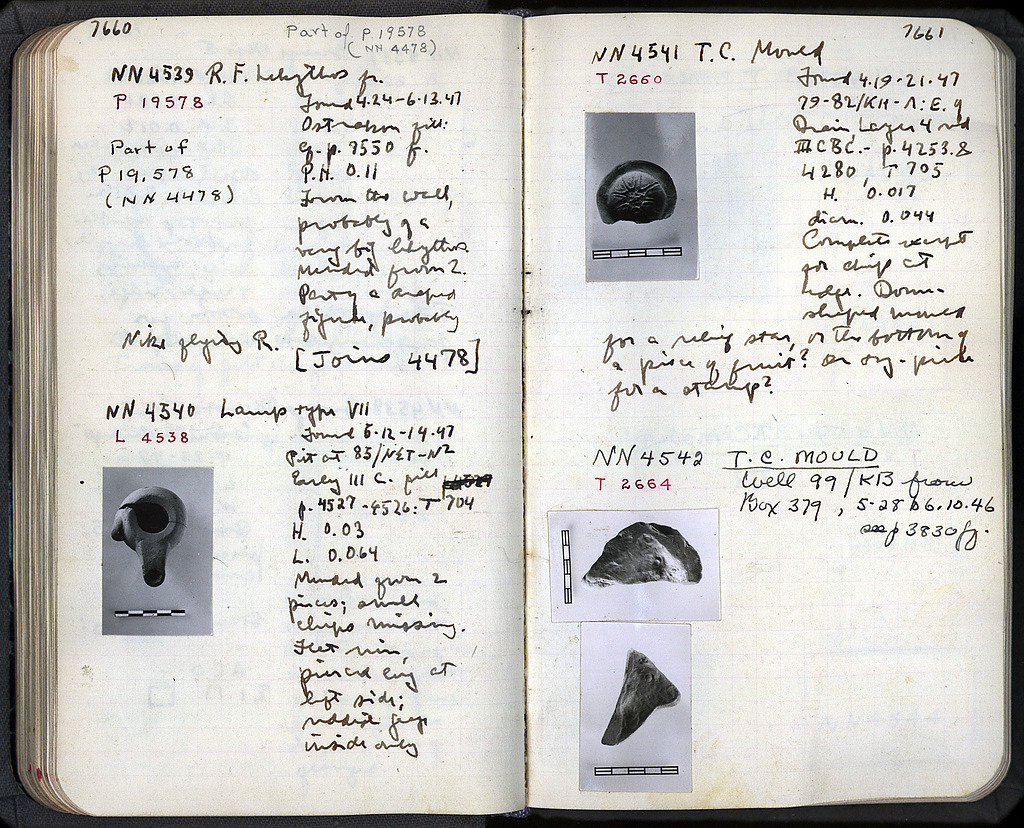 7660
Part of P.19578
(NN 4478)
NN 4539 R.F. Lekythos fr.
P 19578
Part of
P 19,578
(NN 4478)
Found 4.24-6.13.47
Ostrakon fill:
p. 9550 f.
P.H. 0.11
From the wall,
probably of a
very big lekythos
Mended from 2.
Part of a draped
figure, probably
Nike flying R.
[Joins 4478]
NN 4540 Lamp type VII
L 4538
Found 5-12-14.47
Pit at 83/ΝΣΤ-Ν2
Early III C. fill
p. 4527-4526: T 704
H. 0.03
L. 0.064
Mended from 2
pieces; small
chips missing.
Flat rim,
pierced lug at
left side;
reddish glaze
inside only
7661
NN 4541 T.C. Mould
T 2660
Found 4.19-21.47
79-82/ΚΗ-Λ: E. of
Drain, Layer 4
III C BC. - p. 4253.8
4280, T 705
H. 0.017
diam. 0.044
Complete except
for chip at
edge. Dome-
shaped mould
for a relief star, or the bottom of
a piece of fruit? or
for a stamp?
NN 4542 T.C. MOULD
T 2664
Well 99/ΚΒ from
Box 379, 5-28 to 6.10.46
see p 3830 ff.